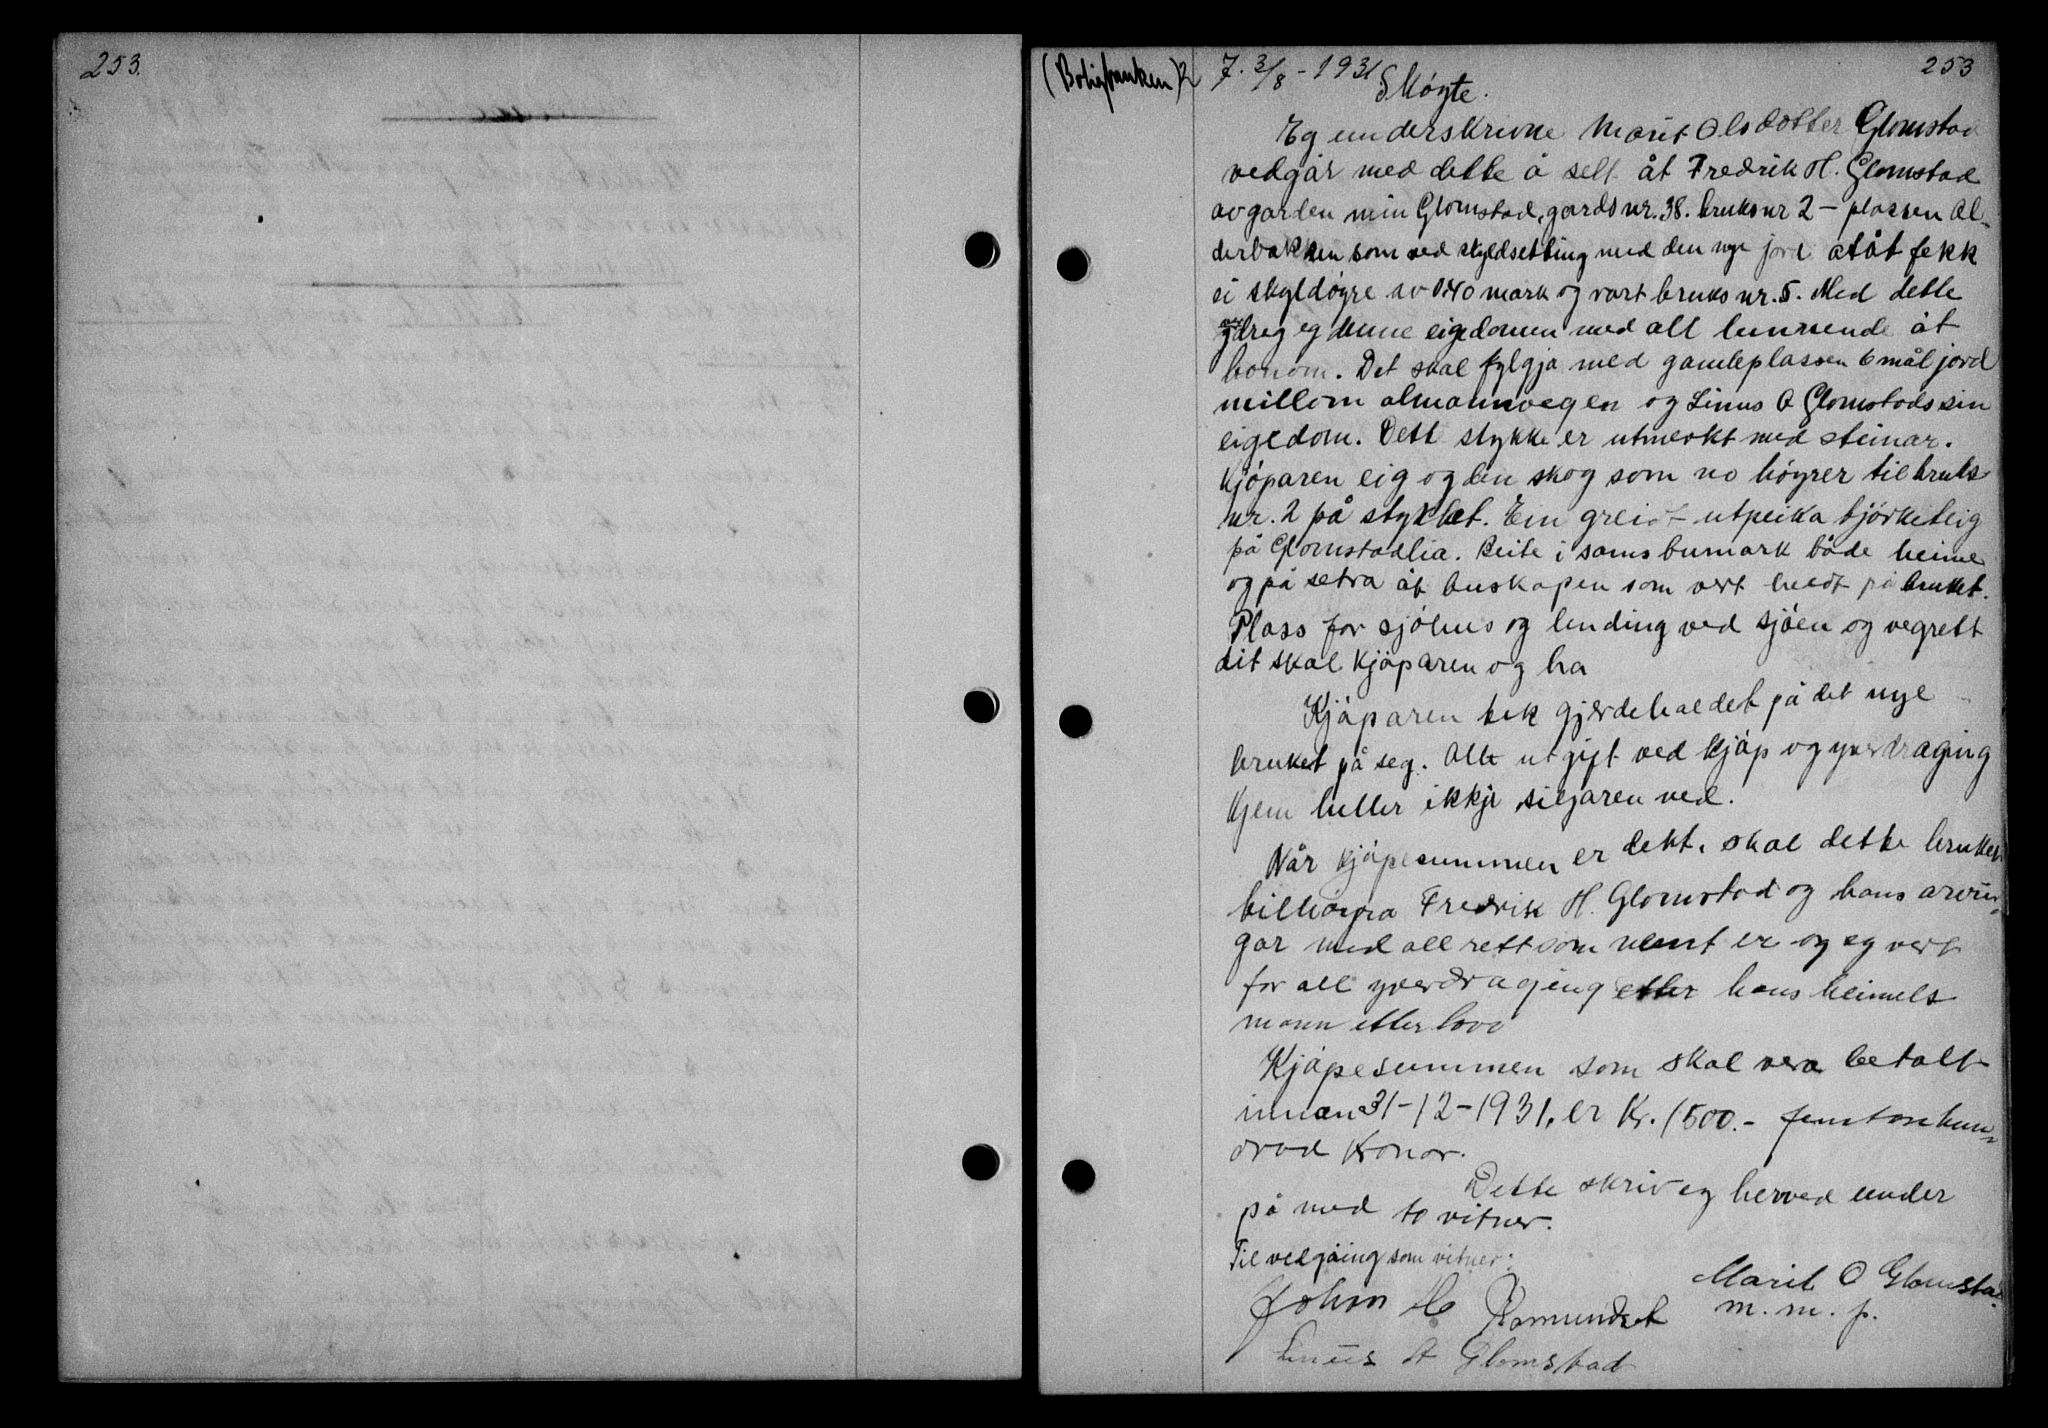 253.
(Boligbanken) 7. 3/8 - 1931 253
Skøyte.
Eg underskrivne Marit Olsdotter Glomstad
vedgår med dette å selt åt Fredrik H. Glomstad
av garden min Glomstad, gardsnr. 38. bruksnr 2 - plassen Al-
derbakken som ved skyldsetting med den nye jord atåt fekk
ei skyldøyre av 0.40 mark og vart bruksnr. 5. Med dette
dreg eg denne eigedomen med all lunnende åt
honom. Det skal fylgja med gamleplassen 6 mål jord
millom almannvegen og Linus A Glomstads sin
eigedom. Dett stykke er utmerkt med steinar.
Kjøparen eig og den skog som no høyrer til bruks
nr. 2 på stykket. Ein greidt utpeika bjørketeig
på Glomstadlia. Beite i sams bumark både heime
og på setra åt buskapen som vert heldt på bruket.
Plass for sjøhus og lending ved sjøen og vegrett
dit skal kjøparen og ha
Kjøparen tek gjerdehaldet på det nye
bruket på seg. All utgift ved kjøp og yverdraging
kjem heller ikkje seljaren ved.
Når kjøpesummen er dekt, skal dette bruket
tilhøyra Fredrik H. Glomstad og hans arvin-
gar med all rett som nemt er og eg vert
for all yverdragjing etter hans heimels
mann etter lova
Kjøpesummen som skal vera betalt
innan 31-12-1931, er Kr. 1500.- femtanhun-
drad kronor.
Dette skriv eg herved under
på med to vitner.
Til vedgåing som vitner:
Marit O Glomstad
m. m. p.
John H Romundset
Linus A Glomstad